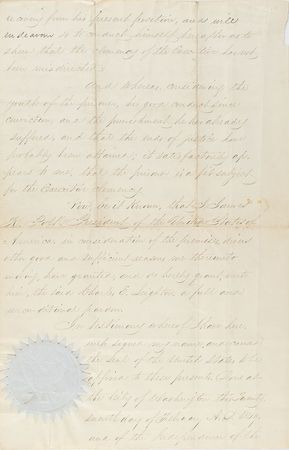 leaving from his present position, and will
endeavor so to conduct himself hereafter as to
show that the clemency of the Executive has not
been misdirected:
And whereas, considering the
youth of the prisoner, his good conduct since
conviction, and the punishment he has already
suffered, and that the ends of justice have
probably been attained; it satisfactorily ap-
pears to me, that the prisoner is a fit subject
for the Executive clemency
Now, be it known, that I, James
K. Polk, President of the United States of
America, in consideration of the premises, divers
other good and sufficient reasons me thereunto
moving, have granted, and do hereby grant, unto
him, the said Charles E. Leighton, a full and
unconditional pardon.
In testimony whereof, I have here-
unto signed my name, and caused
the Seal of the United States to be
affixed to these presents. Done at
the City of Washington this twenty
day of February A.D. 184
and of the Independence of the